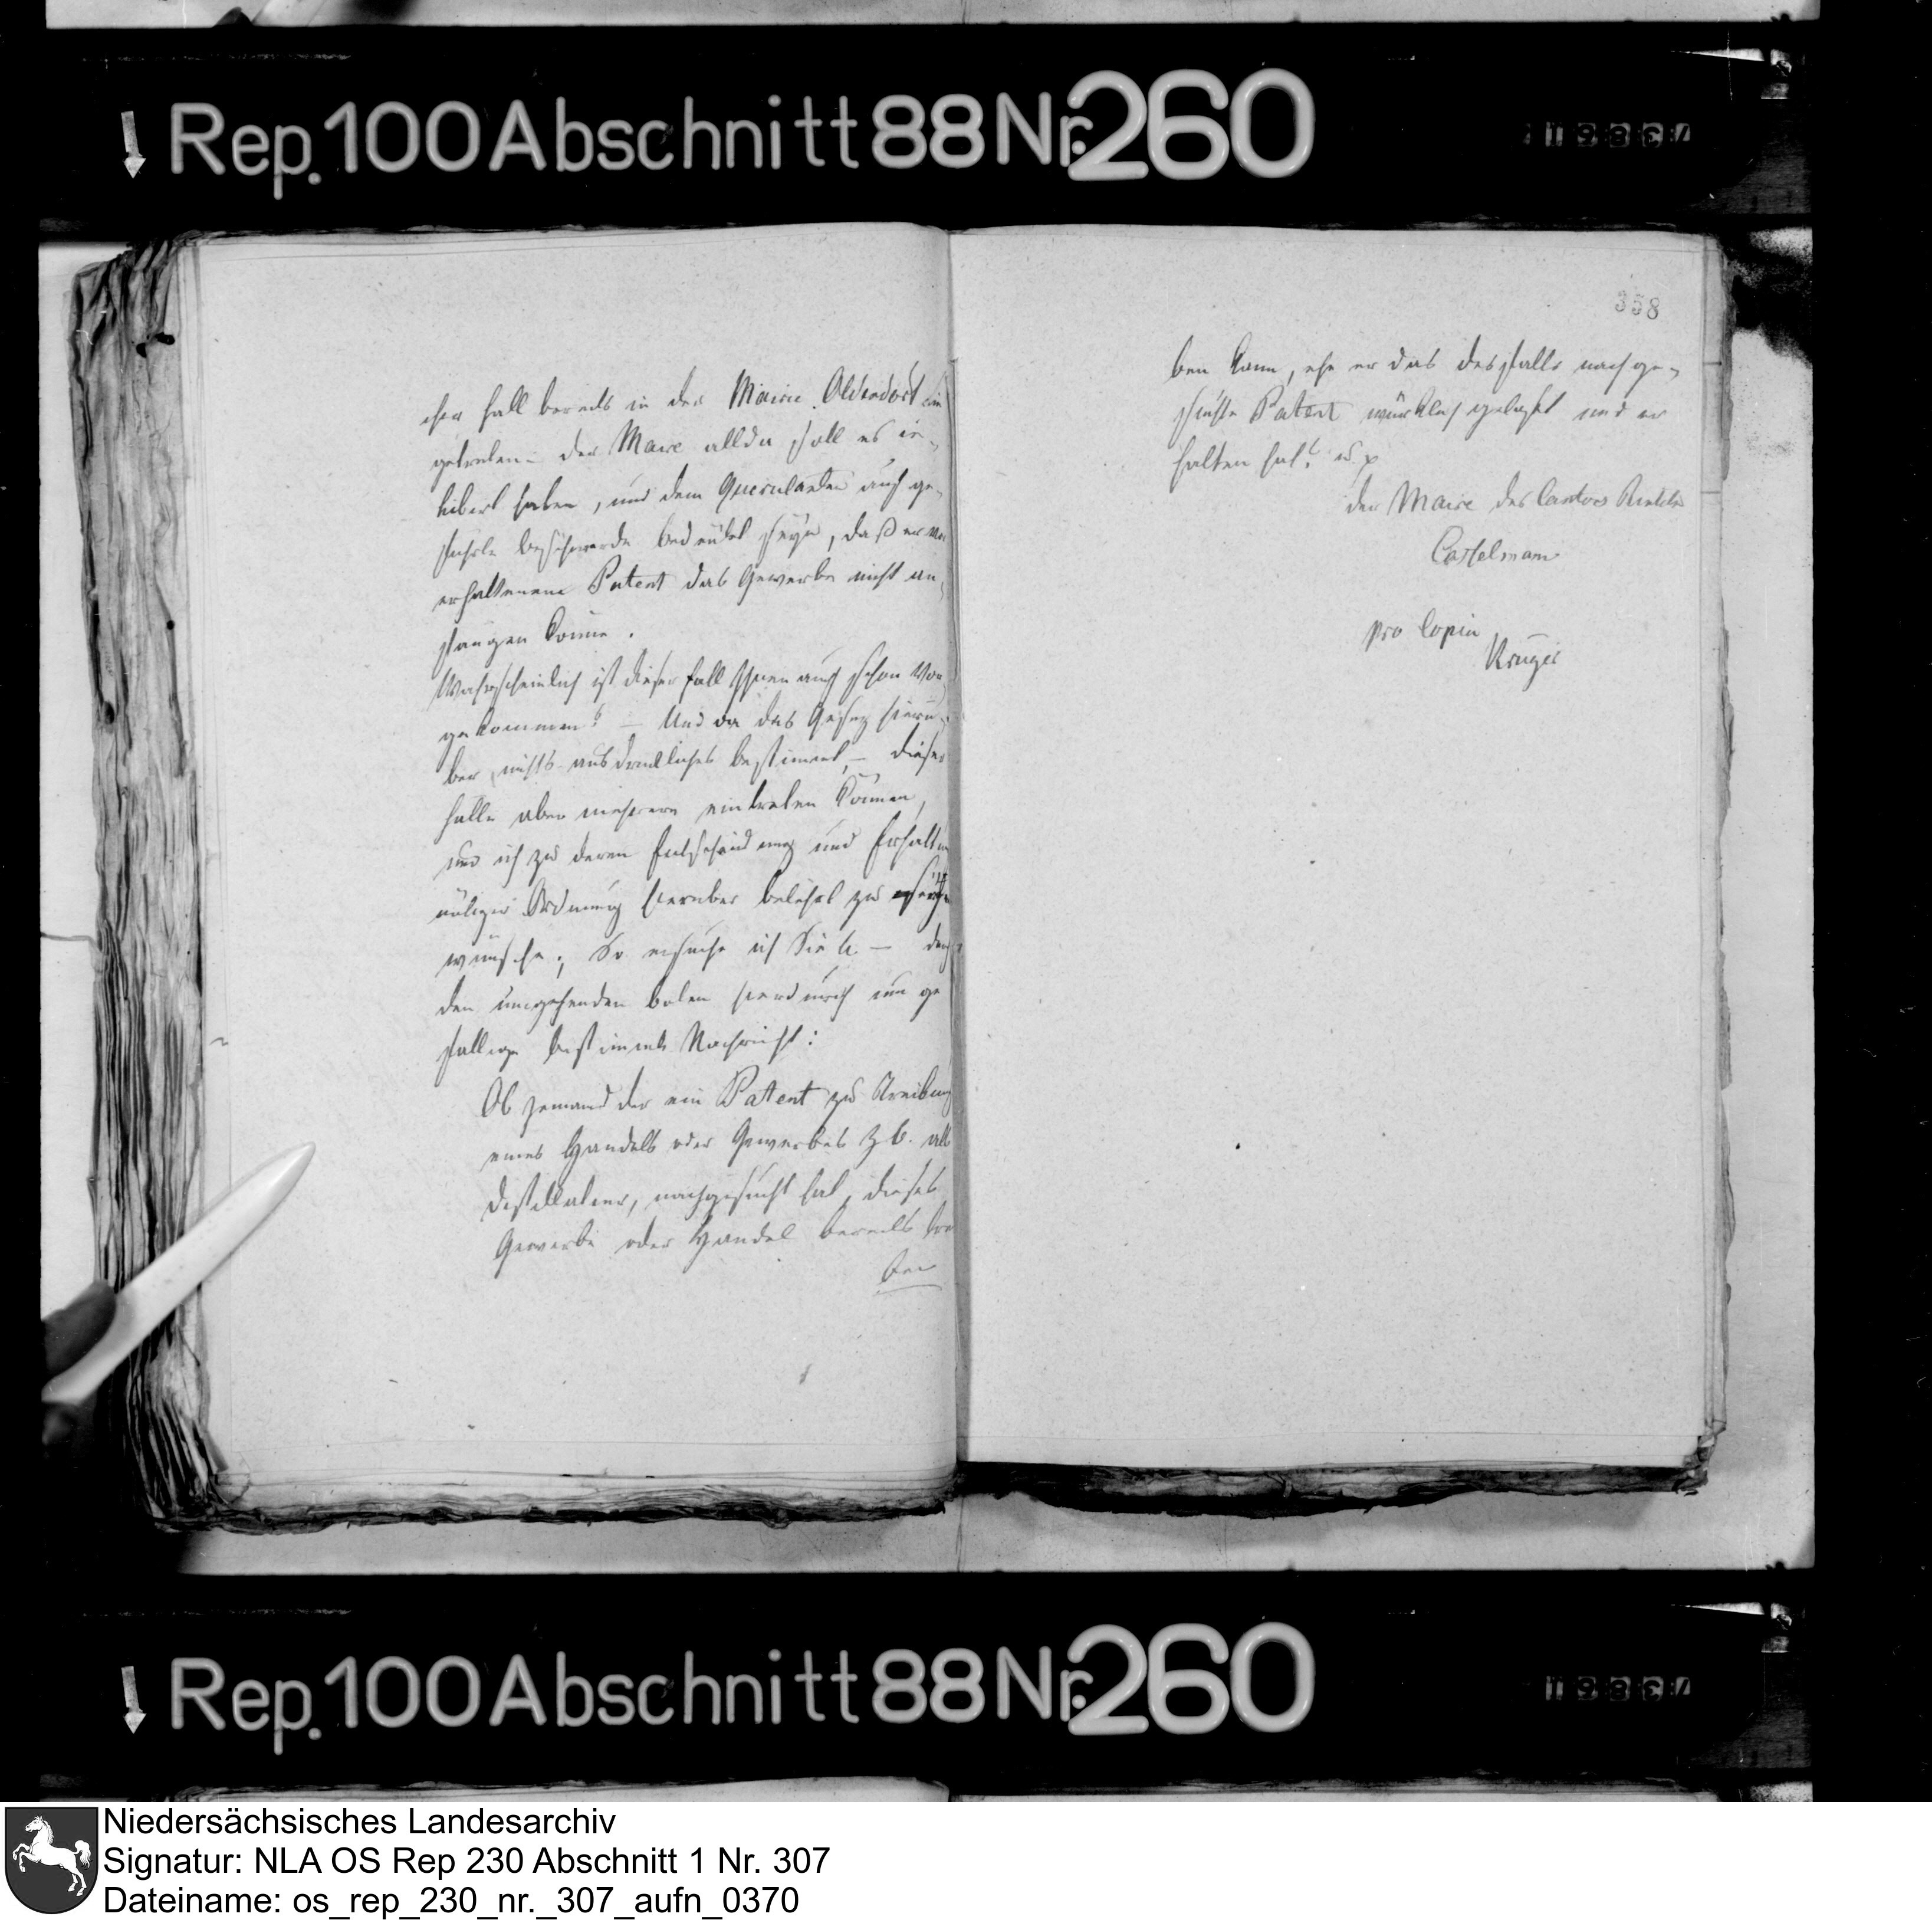 Rep. 100 Abschnitt 88 Nr. 260
358
cher Fall bereits in der Mairie Oldendorf ein
getreten – der Maire allda soll es in-
hibirt haben, und dem Querulanten auf ge-
führte Beschwerde bedeutet seyn, daß er vor
erhaltenem Patent das Gewerbe nicht an-
fangen könne.
Wahrscheinlich ist dieser Fall Ihnen auch schon vor
gekommen? – Und da das Gesez hierü-
ber nichts ausdrückliches bestimmt, – dieser
Fälle aber mehrere eintreten können,
und ich zu deren Entscheidung und Erhaltung
nötiger Ordnung hierüber belehrt zu
wünsche; So ersuche ich Sie – durch
den umgehenden boten hierdurch um ge
fällige bestimmte Nachricht:
Ob jemand der ein Patent zu Treibung
eines Handels oder Gewerbes z. b. als
Destillateur, nachgesucht hat, dieses
Gewerbe oder Handel bereits trei
ben
ben kann, ehe er das desfalls nachge-
suchte Patent würklich gelößt und er
halten hat?
der Maire des Cantons
Casselmann
pro Copia
Krüger
Rep. 100 Abschnitt 88 Nr. 260
Niedersächsisches Landesarchiv
Signatur: NLA OS Rep 230 Abschnitt 1 Nr. 307
Dateiname: os_rep_230_nr._307_aufn_0370